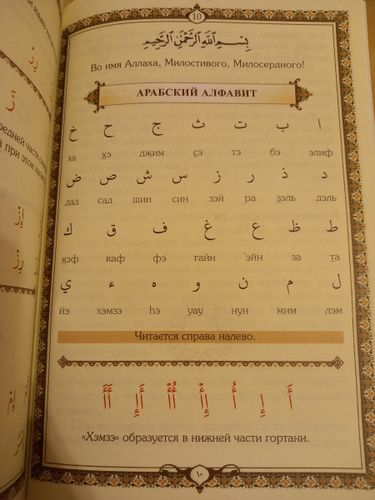 10
بِسْمِ اللَّهِ الرَّحْمَنِ الرَّحِيمِ
Во имя Аллаха, Милостивого, Милосердного!
АРАБСКИЙ АЛФАВИТ
ا ب ت ث ج ح خ
ха хэ джим сэ тэ бэ элиф
د ذ ر ز س ش ص ض
дад сад шин син зэй ра зэль дэль
ط ظ ع غ ف ق ك
кэф каф фэ гайн ’эйн за та
ل م ن و ه ء ي
йэ хэмзэ hэ уау нун мим лэм
Читается справа налево.
أَ إِ أُ أِأُ أُأُ أَإِ أَأَ
«Хэмзэ» образуется в нижней части гортани.
١٠